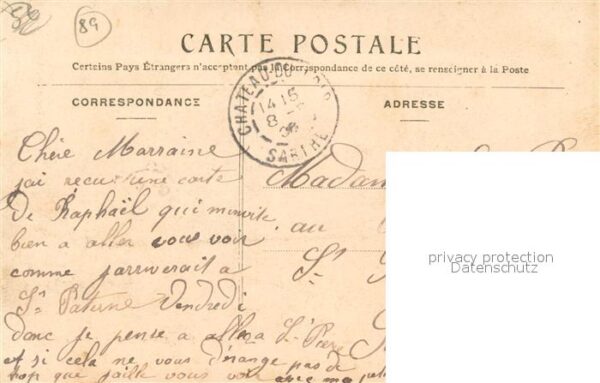 89
CARTE POSTALE
Certains Pays Étrangers n'acceptent pas la Correspondance de ce côté, se renseigner à la Poste
CORRESPONDANCE
ADRESSE
CHATEAU-DU
14 15
8
SARTHE
Chère Marraine
jai recu une carte
de Raphaël qui m'invite
bien a aller vous voir
comme jarriverait a
St Paterne Vendredi
donc je pense a aller a St Pierre
et si cela ne vous dérange pas de
trop que jaille vous voir avec ma
Madam
au
St
privacy protection
Datenschutz